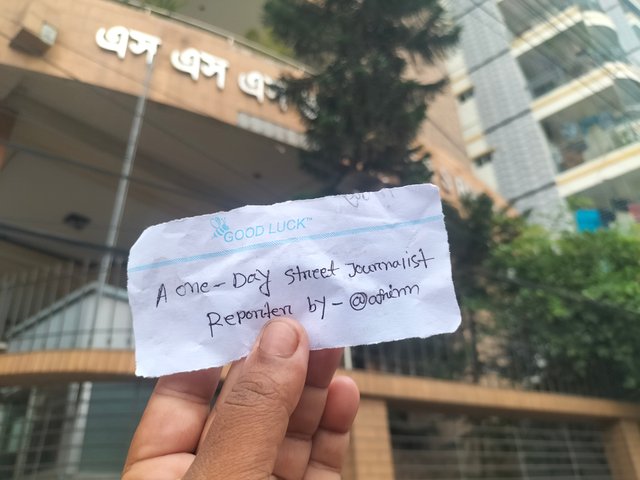 এস এস এ
GOOD LUCK™
A one - Day street Journalist
Reporter by - @afnimm